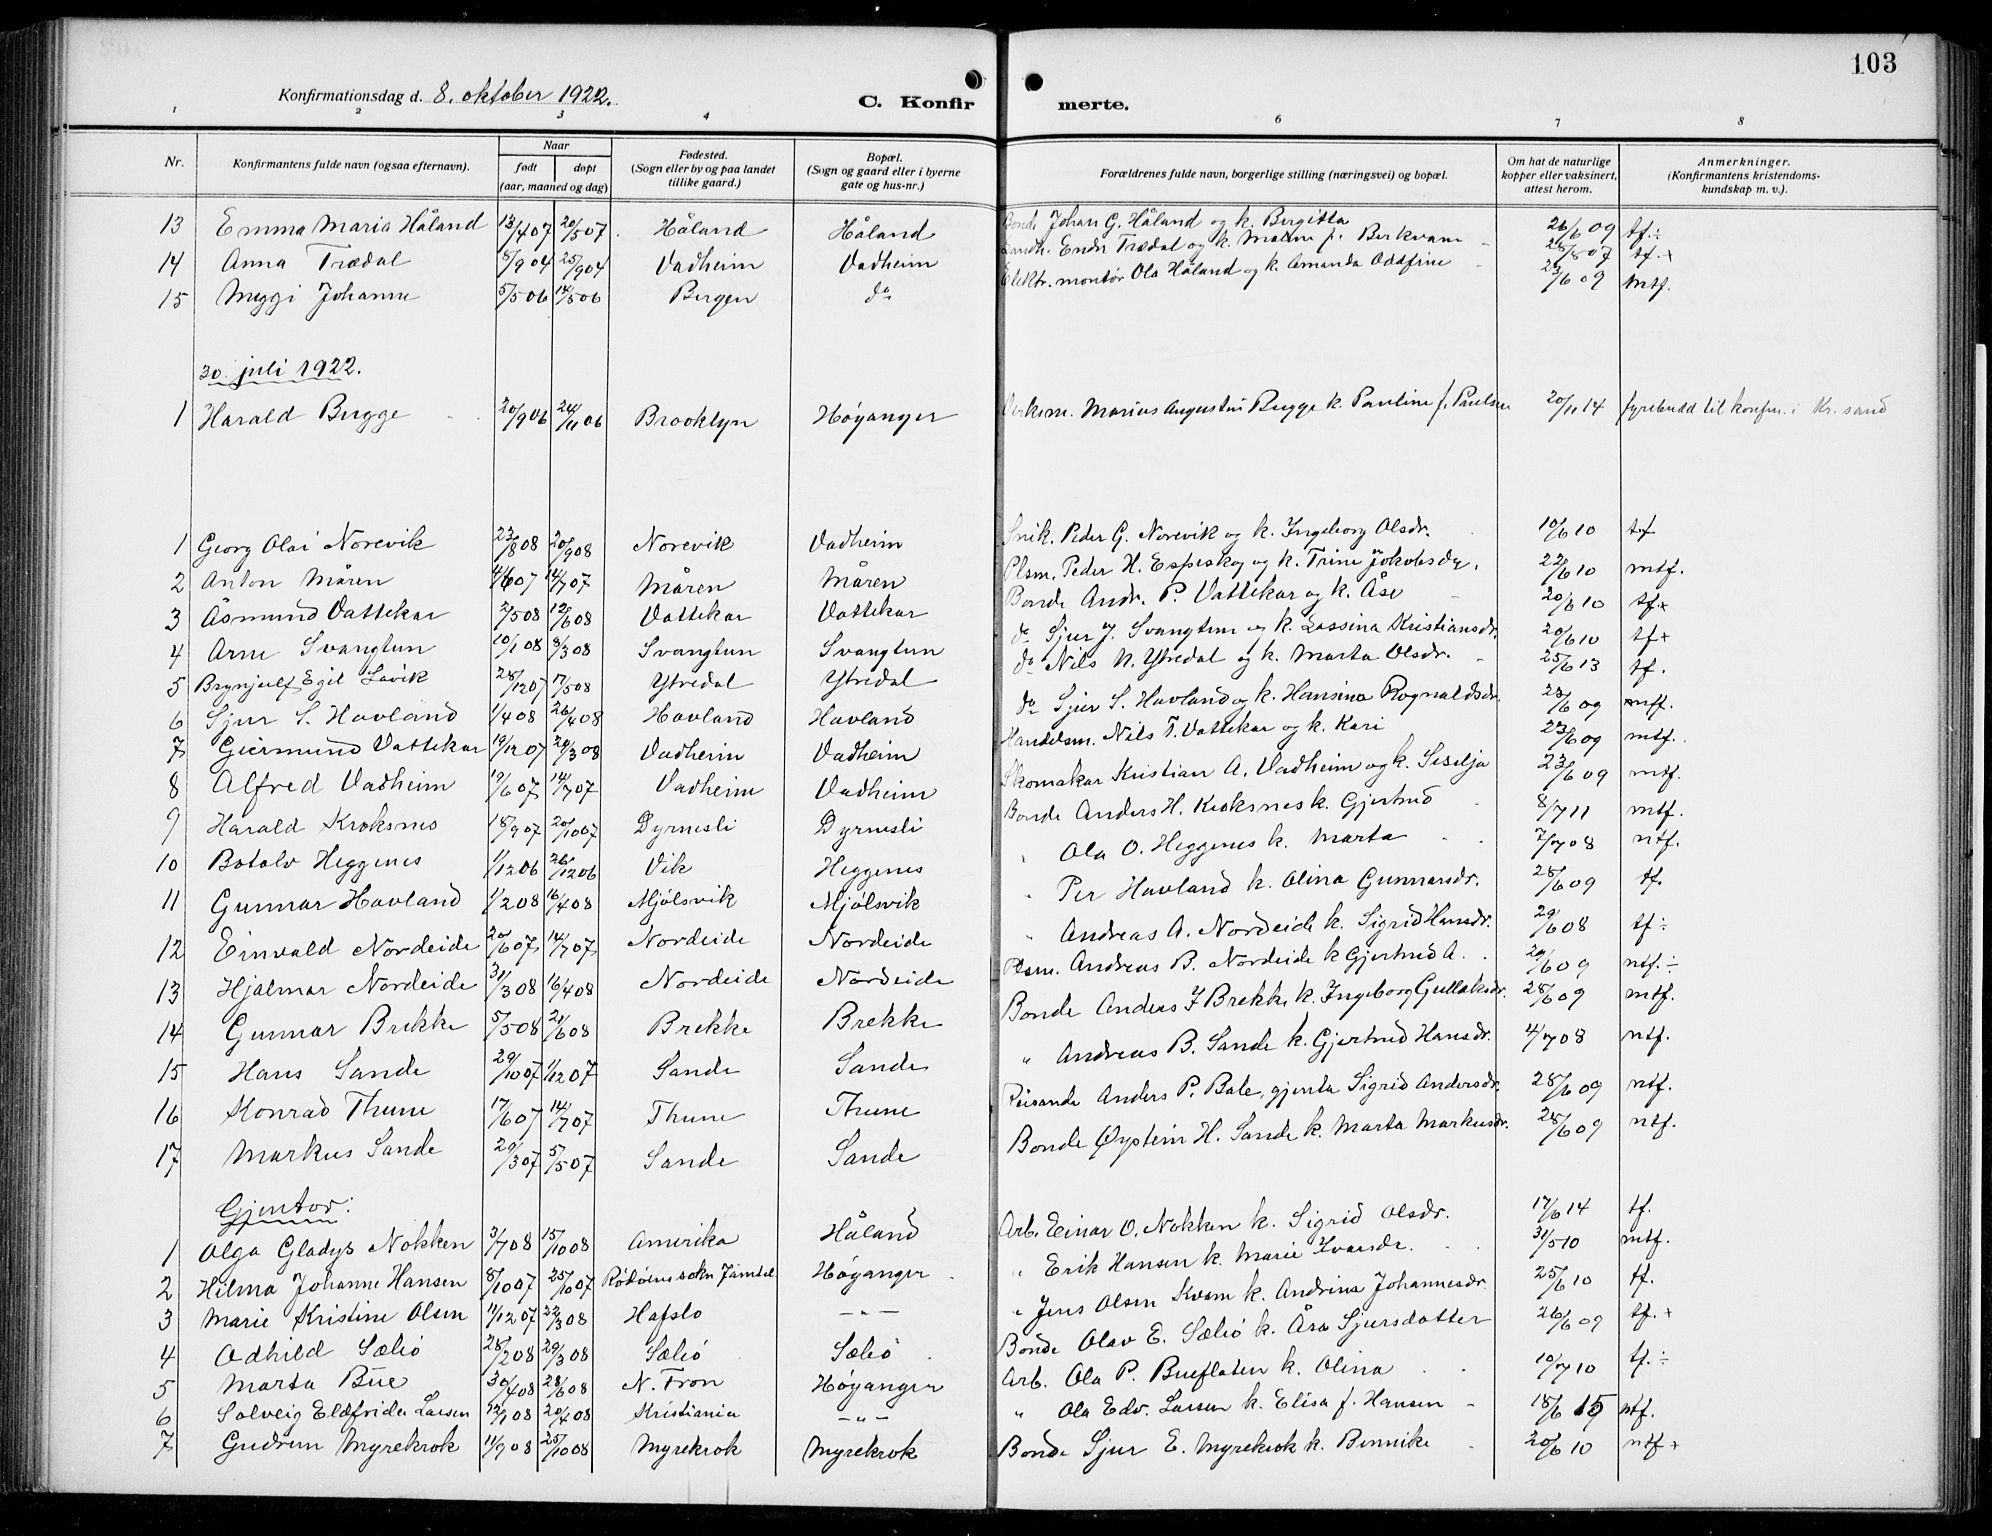 103
Konfirmationsdag d. 8. oktober 1922.
C. Konfirmerte.
1 2 3 4 6 7 8
Nr. Konfirmantens fulde navn (ogsaa efternavn). Naar født døpt (aar, maaned og dag) Fødested. (Sogn eller by og paa landet tillike gaard.) Bopæl. (Sogn og gaard eller i byerne gate og hus-nr.) Forældrenes fulde navn, borgerlige stilling (næringsvei) og bopæl. Om hat de naturlige kopper eller vaksinert, attest herom. Anmerkninger. (Konfirmantens kristendomskundskap m. v.).
13 Emma Maria Håland 13/4 07 20/5 07 Håland Håland Bonde Johan G. Håland og k. Birgitta 26/6 09 tf. ÷
14 Anna Trædal 8/9 04 25/9 04 Vadheim Vadheim Landh. Endr Trædal og k. Malene f. Berkvam 28/8 07 tf. +
15 Meggi Johanne 5/5 06 14/5 06 Bergen do Elektr. montør Ola Håland og k. Amanda Oddfrine /6 09 mtf.
30. juli 1922.
1 Harald Bugge 20/9 06 24/11 06 Brooklyn Høyanger Verksm. Marius Augustin Bugge k. Pauline f. Paulsen 20/11 14 fyrebudd til konfm. i Kr. sand
1 Georg Olai Norevik 23/8 08 20/9 08 Norevik Vadheim Snik. Peder G. Norevik og k. Ingeborg Olsdr. 10/6 10 tf
2 Anton Måren 4/6 07 14/7 07 Måren Måren Plsm. Peder H. Espeskog og k. Trine Jakobsdr. 22/6 10 mtf.
3 Åsmund Vattekar 2/5 08 12/6 08 Vattekar Vattekar Bonde Andr. P. Vattekar og k. Åse 20/6 10 tf. +
4 Arne Svangtun 10/1 08 8/3 08 Svangtun Svangtun do Sjur J. Svangtun og k. Lassina Kristiansdr. 20/6 10 tf +
5 Brynjulf Egil Lavik 28/12 07 17/5 08 Ytredal Ytredal do Nils N. Ytredal og k. Marta Olsdr. 25/6 13 tf.
6 Sjur S. Havland 1/4 08 26/4 08 Havland Havland do Sjur S. Havland og k. Hansina Rognaldsdr. 28/6 09 mtf.
7 Geirmund Vattekar 19/12 07 20/3 08 Vadheim Vadheim Handelsm. Nils T. Vattekar og k. Kari 23/6 09 mtf.
8 Alfred Vadheim 19/6 07 14/7 07 Vadheim Vadheim Skomakar Kristian A. Vadheim og k. Sesilja 23/6 09 mtf.
9 Harald Kroksnes 18/9 07 20/10 07 Dyrnesli Dyrnesli Bonde Anders H. Kroksnes k. Gjertrud 8/7 11 mtf.
10 Botolv Heggenes 1/12 06 26/12 06 Vik Heggenes " Ola O. Heggenes k. Marta 7/7 08 ntf.
11 Gunnar Havland 1/2 08 16/4 08 Mjölsvik Mjölsvik " Per Havland k. Olina Gunnarsdr. 28/6 09 tf.
12 Einvald Nordeide 20/6 07 14/7 07 Nordeide Nordeide " Andreas A. Nordeide k. Sigrid Hansdr. 29/6 08 tf ÷
13 Hjalmar Nordeide 31/3 08 16/4 08 Nordeide Nordeide Plsm. Andreas B. Nordeide k Gjertrud A. 29/6 09 ntf. ÷
14 Gunnar Brekke 5/5 08 21/6 08 Brekke Brekke Bonde Andeas J Brekke k. Ingeborg Gullaksdr. 28/6 09 mtf.
15 Hans Sande 29/10 07 1/12 07 Sande Sande " Andreas B. Sande k. Gjertrud Hansdr. 4/7 08 ntf.
16 Konrad Thune 17/6 07 14/7 07 Thune Thune Reisande Anders P. Bale, gjenta Sigrid Andersdr. 28/6 09 ntf.
17 Markus Sande 29/3 07 5/5 07 Sande Sande Bonde Øystein H. Sande k. Marta Markusdr. 28/6 09 ntf.
Gjentor:
1 Olga Gladys Nokken 3/7 08 15/10 08 Amerika Håland Arb. Einar O. Nokken k. Sigrid Olsdr. 17/6 14 tf.
2 Hilma Johanne Hansen 8/10 07 25/10 07 Rödöens sokn Jämtel Høyanger " Erik Hansen k. Marie Ivarsdr. 31/5 10 mtf.
3 Marie Kristine Olsen 11/12 07 22/3 08 Hafslo —"— " Jens Olsen Kvam k. Andrine Johannesdr. 25/6 10 tf.
4 Odhild Sæleö 28/2 08 29/3 08 Sæleö Sæleö Bonde Olav E. Sæleö k. Åsa Sjursdotter 26/6 09 tf. +
5 Marta Bue 30/4 08 28/6 08 N. Fron Høyanger Arb. Ola P. Bueflaten k. Olina 10/7 10 tf. ÷
6 Solveig Eldfrida Larsen 12/1 08 20/4 08 Kristiania —"— " Ola Edv. Larsen k. Elisa f. Hansen 18/6 15 ntf.
7 Gudrun Myrekrok 11/9 08 25/10 08 Myrekrok Myrekrok Bonde Sjur E. Myrekrok k. Bennike 20/6 10 ntf +